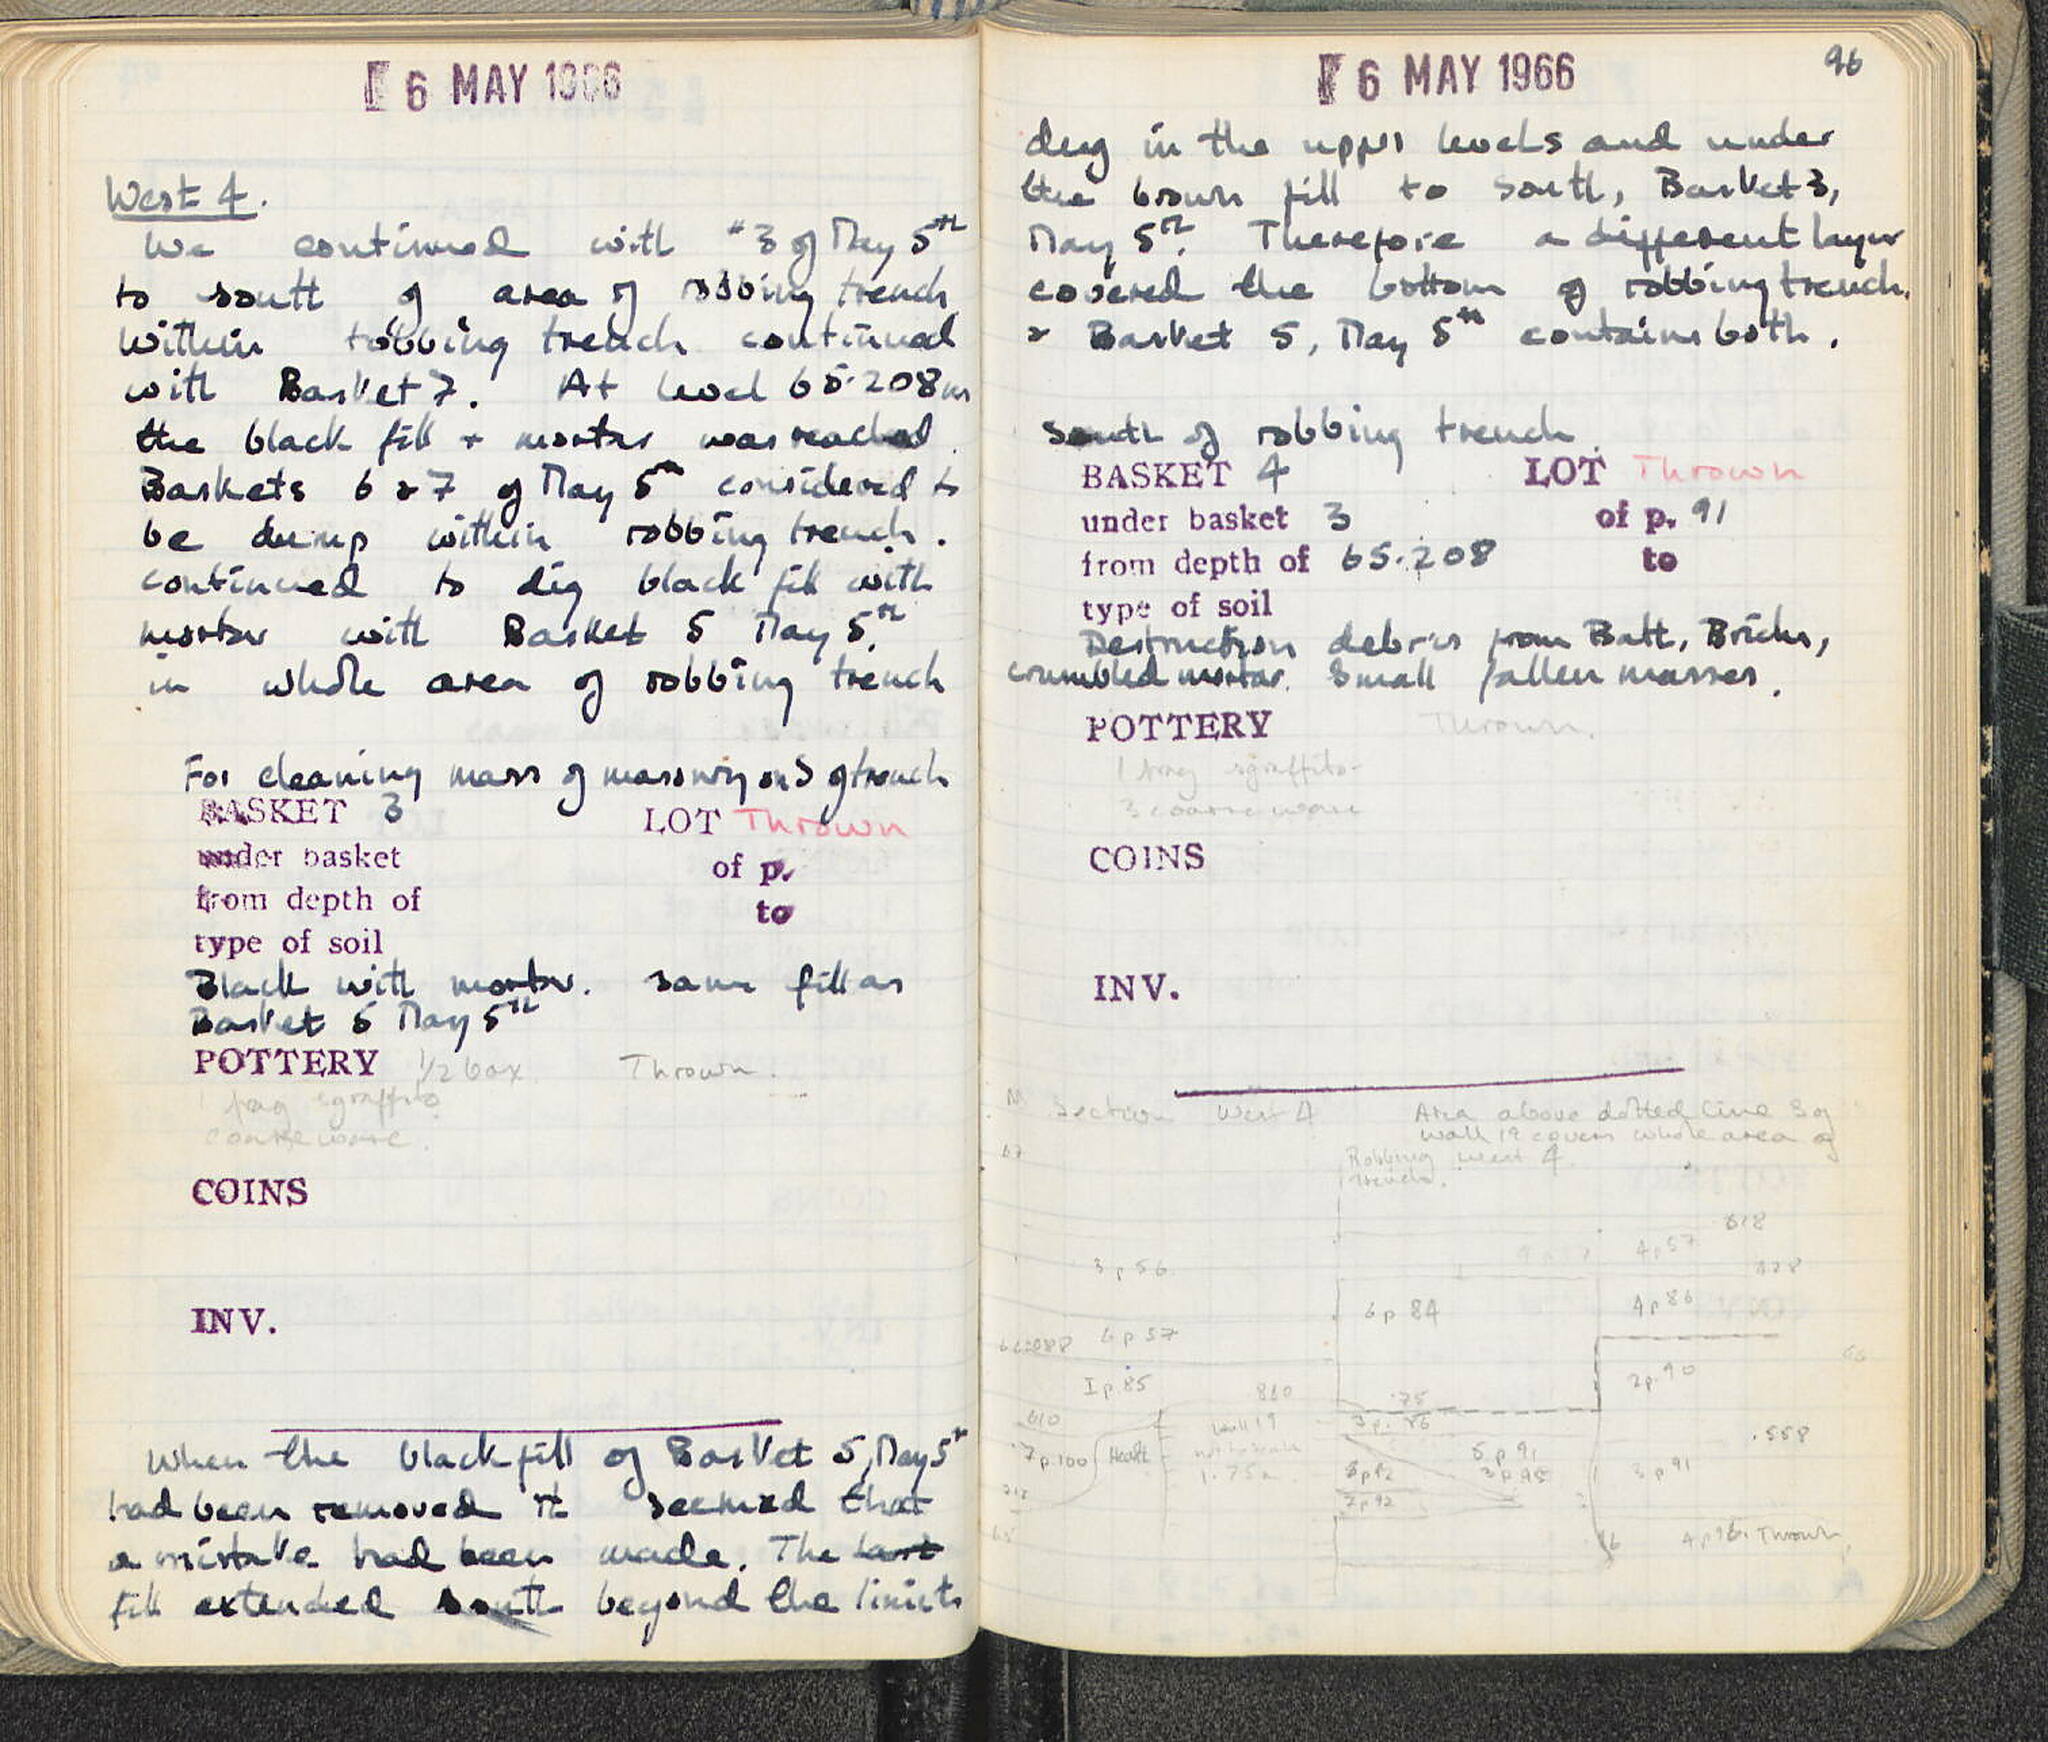 6 MAY 1966
West 4.
We continued with #3 of May 5th
to south of area of robbing trench
within robbing trench continued
with Basket 7. At level 65.208m
the black fill + mortar was reached.
Baskets 6 & 7 of May 5th considered to
be dump within robbing trench.
continued to dig black fill with
mortar with Basket 5 May 5th.
in whole area of robbing trench
For cleaning mass of masonry on S of trench
BASKET 3 LOT Thrown
under basket of p.
from depth of to
type of soil
Black with mortar. same fill as
Basket 5 May 5th
POTTERY 1/2 box Thrown.
1 frag sgraffito
coarse ware.
COINS
INV.
When the black fill of Basket 5, May 5th
had been removed it seemed that
a mistake had been made. The last
fill extended south beyond the limits
6 MAY 1966 96
dug in the upper levels and under
the brown fill to south, Basket 3,
May 5th. Therefore a different layer
covered the bottom of robbing trench.
& Basket 5, May 5th contains both.
South of robbing trench.
BASKET 4 LOT Thrown
under basket 3 of p. 91
from depth of 65.208 to
type of soil
Destruction debris from Batt, Bricks,
crumbled mortar. Small fallen masses.
POTTERY Thrown.
1 frag sgraffito
3 coarse ware
COINS
INV.
M Section West 4 Area above dotted line S of
wall 19 covers whole area of
67 Robbing West 4
trench.
618
4 p 57
3 p 56
6 p 84 4 p 86
6 p 57
2 p. 90
1 p. 85 860 .75
610 wall 19 3 p. 86
.558
7 p. 100 Hearth 5 p 91
1.75m 3 p 95 3 p 91
2 p 92
65 4 p 96. Thrown